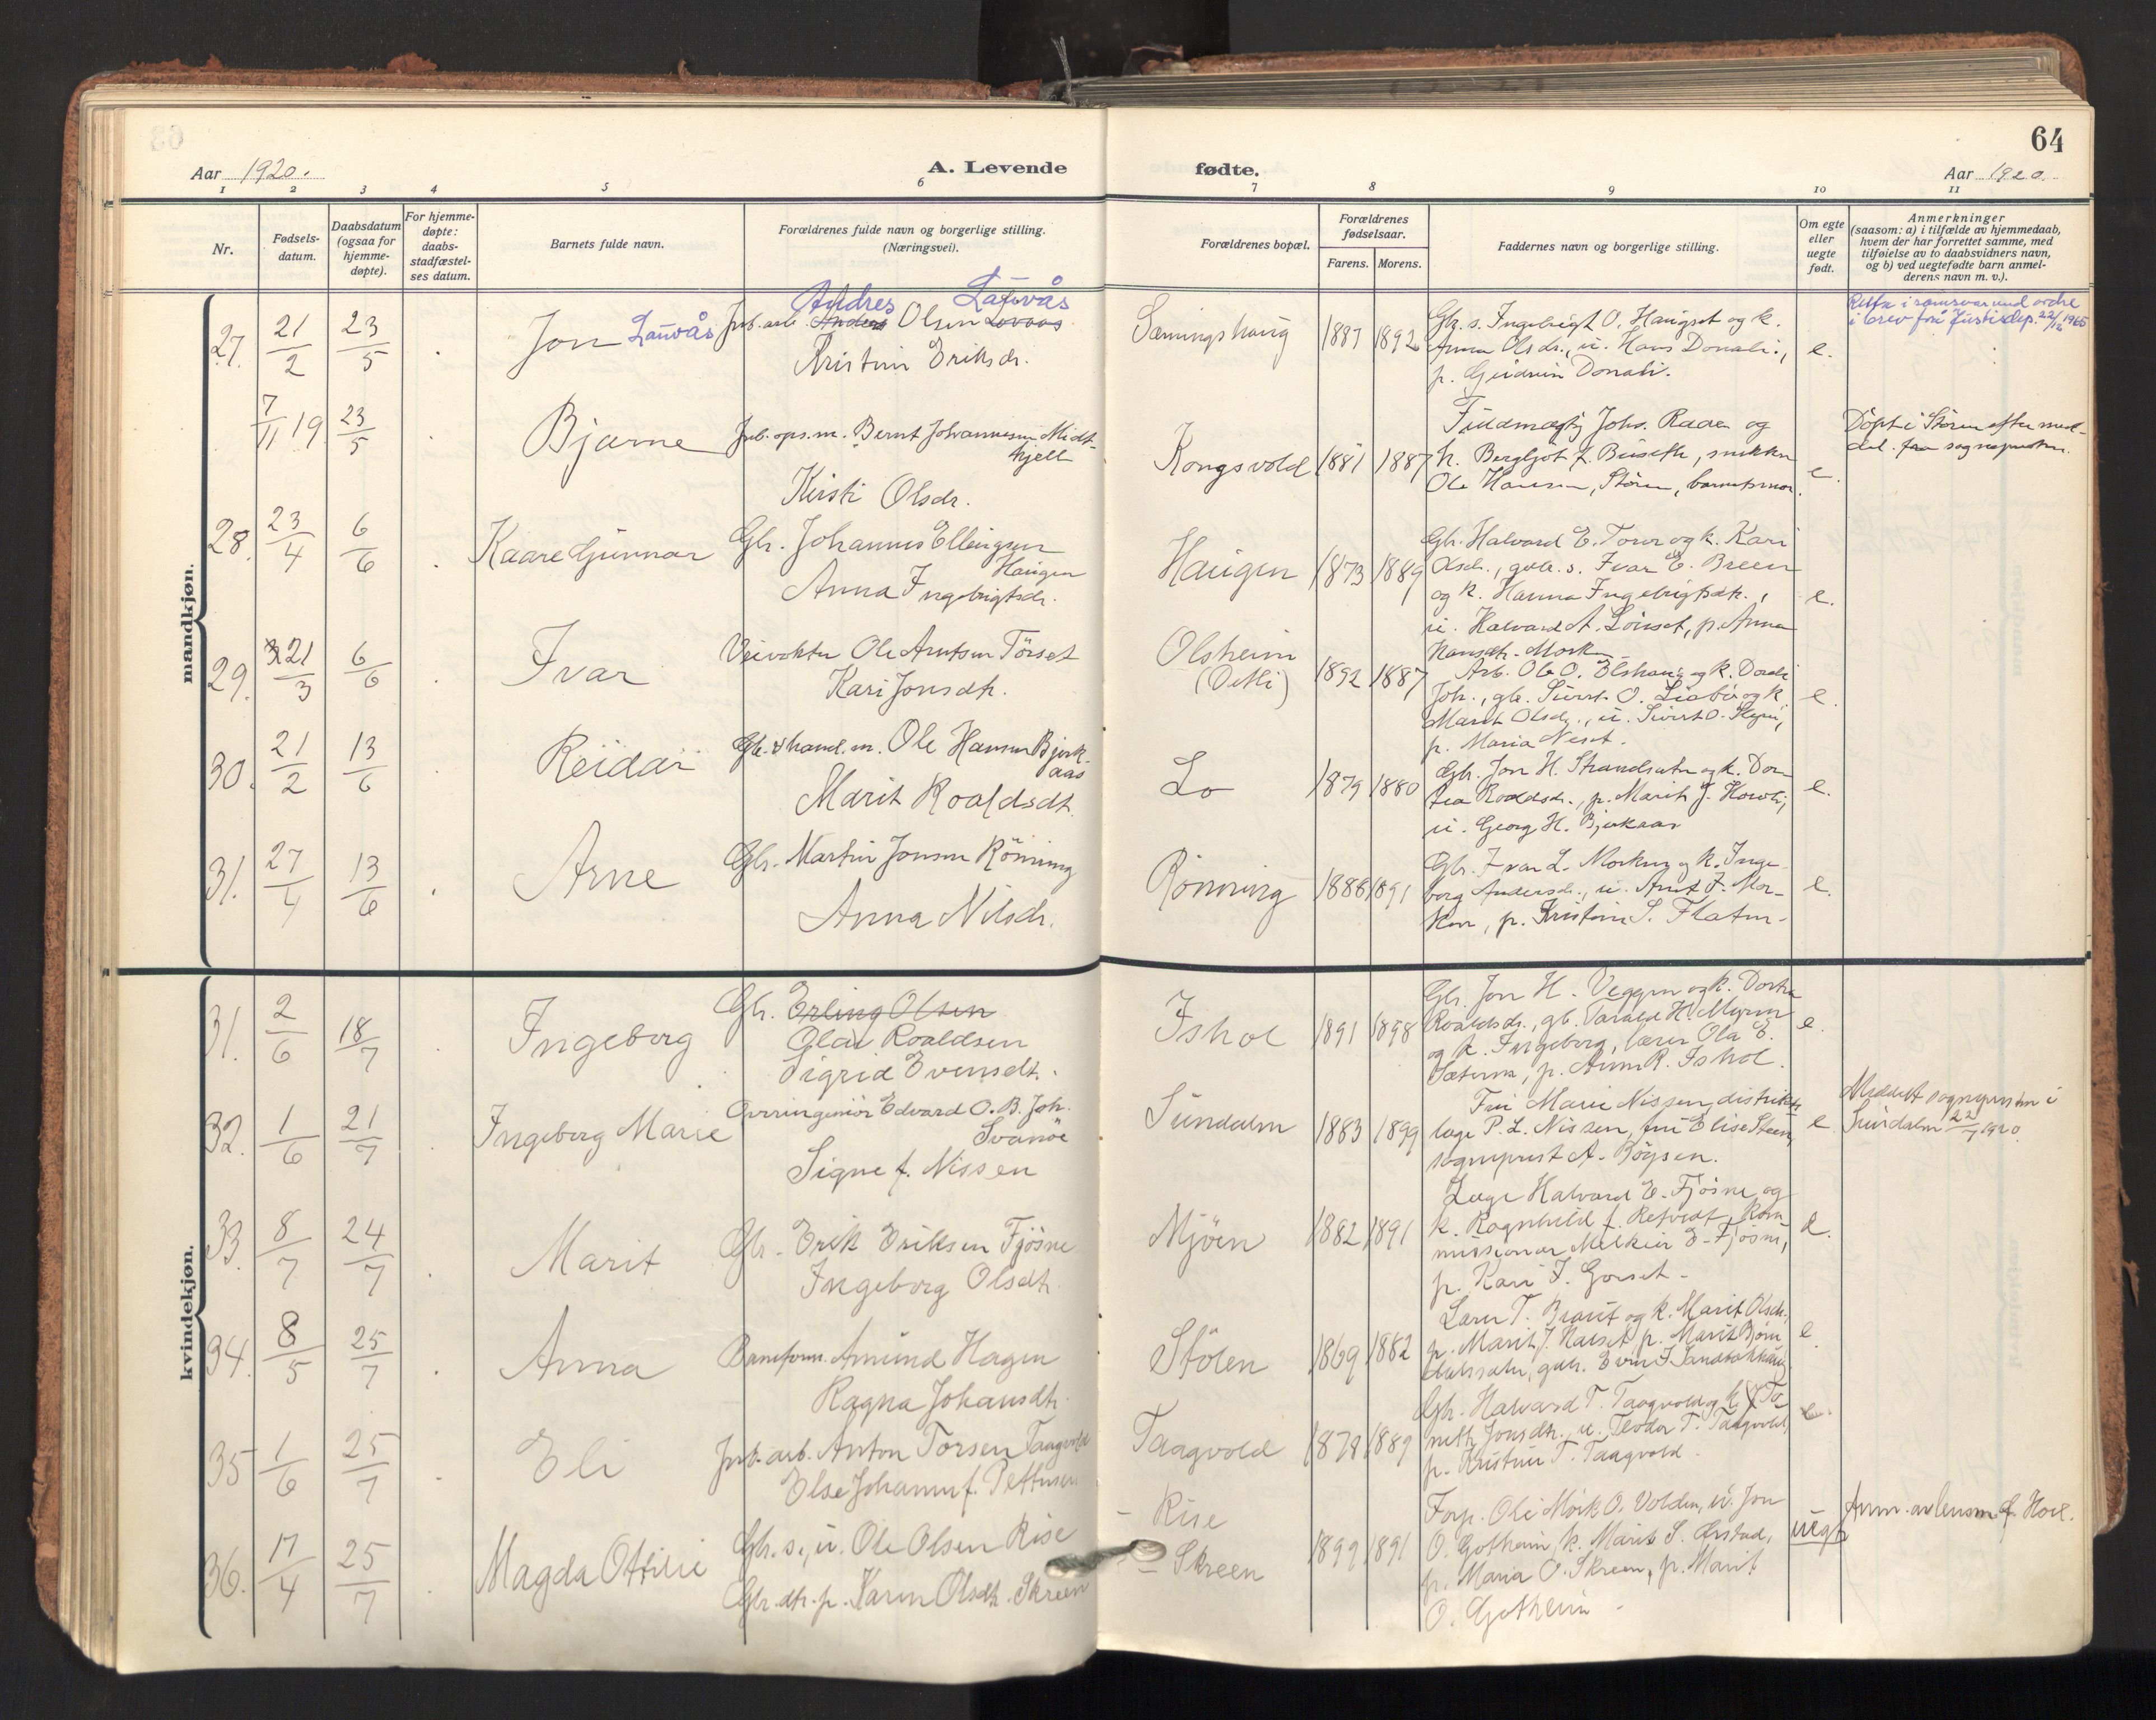 64
Aar 1920.
A. Levende
fødte.
Aar 1920.
1 2 3 4 5 6 7 8 9 10 11
Nr.
Fødsels-
datum.
Daabsdatum
(ogsaa for
hjemme-
døpte).
For hjemme-
døpte:
daabs-
stadfæstel-
ses datum.
Barnets fulde navn.
Forældrenes fulde navn og borgerlige stilling.
(Næringsvei).
Forældrenes bopæl.
Forældrenes
fødselsaar.
Farens. Morens.
Faddernes navn og borgerlige stilling.
Om egte
eller
uegte
født.
Anmerkninger
(saasom: a) i tilfælde av hjemmedaab,
hvem der har forrettet samme, med
tilføielse av to daabsvidners navn,
og b) ved uegtefødte barn anmel-
derens navn m. v.).
mandkjøn.
27. 21/2 23/5 Jon Lauvås
Andres Lauvås
Jnb. arb. Anders Olsen Lovaas
Kristine Eriksdr.
Sæmingshaug 1887 1892
Gbr. s. Ingebrigt O. Haugset og k.
Anna Olsdr., u. Hans Donali,
p. Gudrun Donali.
e.
i brev frå Justisdep. 22/12 1965
7/11 19 23/5 Bjarne
Jnb. ops.m. Bernt Johannesen Midt-
hjell
Kirsti Olsdr.
Kongsvold 1881 1887
Fuldmægtig Johs. Raaen og
k. Bergljot f. Buseth, snekker
Ole Hansen, Støren, barnets mor.
e.
Döpt i Støren efter med-
del. fra sogneprsten.
28. 23/4 6/6 Kaare Gunnar
Gbr. Johannes Ellingsen
Haugen
Anna Ingebrigtsdr.
Haugen 1873 1889
Gbr. Halvard E. Torve og k. Kari
Olsdr., gbr. s. Ivar E. Breen
og k. Hanna Ingebrigtsdr.,
u. Halvard A. Lönset, p. Anna
Hansdtr. Morken
e.
29. 21/3 6/6 Ivar
Veivokter Ole Arntsen Törset
Kari Jonsdtr.
Olsheim
1892 1887
Arb. Ole O. Elshaug og k. Dordi
Joh., gbr. Sivert O. Liabö og k.
Marit Olsdr., u. Sivert O.
p. Maria Neset.
e.
30. 21/2 13/6 Reidar
Gbr. & hand. m. Ole Hansen Bjerk-
aas
Marit Roaldsdt.
Lo 1879 1880
Gbr. Jon H. Strandsæter og k. Dor-
tea Roaldsdr., p. Marit J. Horvli,
u. Georg H. Bjerkaas
e.
31. 27/4 13/6 Arne
Gbr. Martin Jonsen Rönning
Anna Nilsdr.
Rönning 1886 1891
Gbr. Ivar L. Morken og k. Inge-
borg Andersdr., u. Arnt I. Mor-
ken, p. Kristine S. Flaten.
e.
kvindekjøn.
31. 2/6 18/7 Ingeborg
Gbr. Erling Olsen
Olav Roaldsen
Sigrid Evensdt.
Ishol 1891 1898
Gbr. Jon H. Veggen og k. Dortea
Roaldsdr., gb. Harald H. Myren
og k. Ingeborg, lærer Ola E.
Sæteren, p. Anne R. Ishol.
e.
32. 1/6 21/7 Ingeborg Marie
Overingeniör Edvard O. B. Joh.
Svanöe
Signe f. Nissen
Sundalen 1883 1899
Fru Marie Nissen, distrikts-
læge P. L. Nissen, fru Elise Steen,
sogneprest A. Böysen.
e.
Meddelt sognepresten i
Sundalen 22/7 1920.
33. 8/7 24/7 Marit
Gbr. Erik Eriksen Fjösne
Ingeborg Olsdt.
Mjöen 1882 1891
Læge Halvard E. Fjösne og
k. Ragnhild f. Refvedt, Kom
missionær Melkior E. Fjösne,
p. Kari I. Gorset.
e.
34. 8/5 25/7 Anna
Baneform. Amund Hagen
Ragna Johansdtr.
Stölen 1869 1882
Lærer T. Braut og k. Marit Olsdr.,
p. Marit J. Naeset, p. Marit Björn
gbr. Even I. Sandbakhaug
e.
35 1/6 25/7 Eli
Jnb. arb. Anton Torsen Taagvold
Else Johanne f. Pettersen
Taagvold 1878 1889
Gbr. Halvard T. Taagvold og k. f.
Jonsdtr. u. Teodor T. Taagvold,
p. Kristine T. Taagvold.
e.
36. 17/4 25/7 Magda Ottilie
Gbr. s., u. Ole Olsen Rise
Gbr. dtr. p. Karen Olsdt. Skreen
– Rise
– Skreen
1899 1891
Forp. Ole Mörk O. Volden, u. Jon
O. Gotheim, k. Marit S. Örstad,
p. Maria O. Skreen, p. Marit
O. Gotheim.
uegte
Anm. av lensm. f. Hoel.